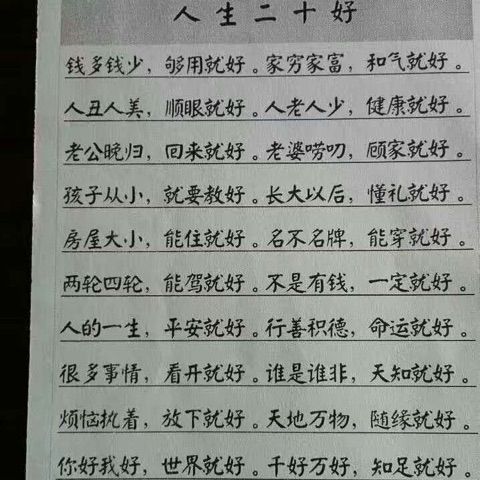 人生二十好
钱多钱少，够用就好。家穷家富，和气就好。
人丑人美，顺眼就好。人老人少，健康就好。
老公晚归，回来就好。老婆唠叨，顾家就好。
孩子从小，就要教好。长大以后，懂礼就好。
房屋大小，能住就好。名不名牌，能穿就好。
两轮四轮，能驾就好。不是有钱，一定就好。
人的一生，平安就好。行善积德，命运就好。
很多事情，看开就好。谁是谁非，天知就好。
烦恼执着，放下就好。天地万物，随缘就好。
你好我好，世界就好。千好万好，知足就好。